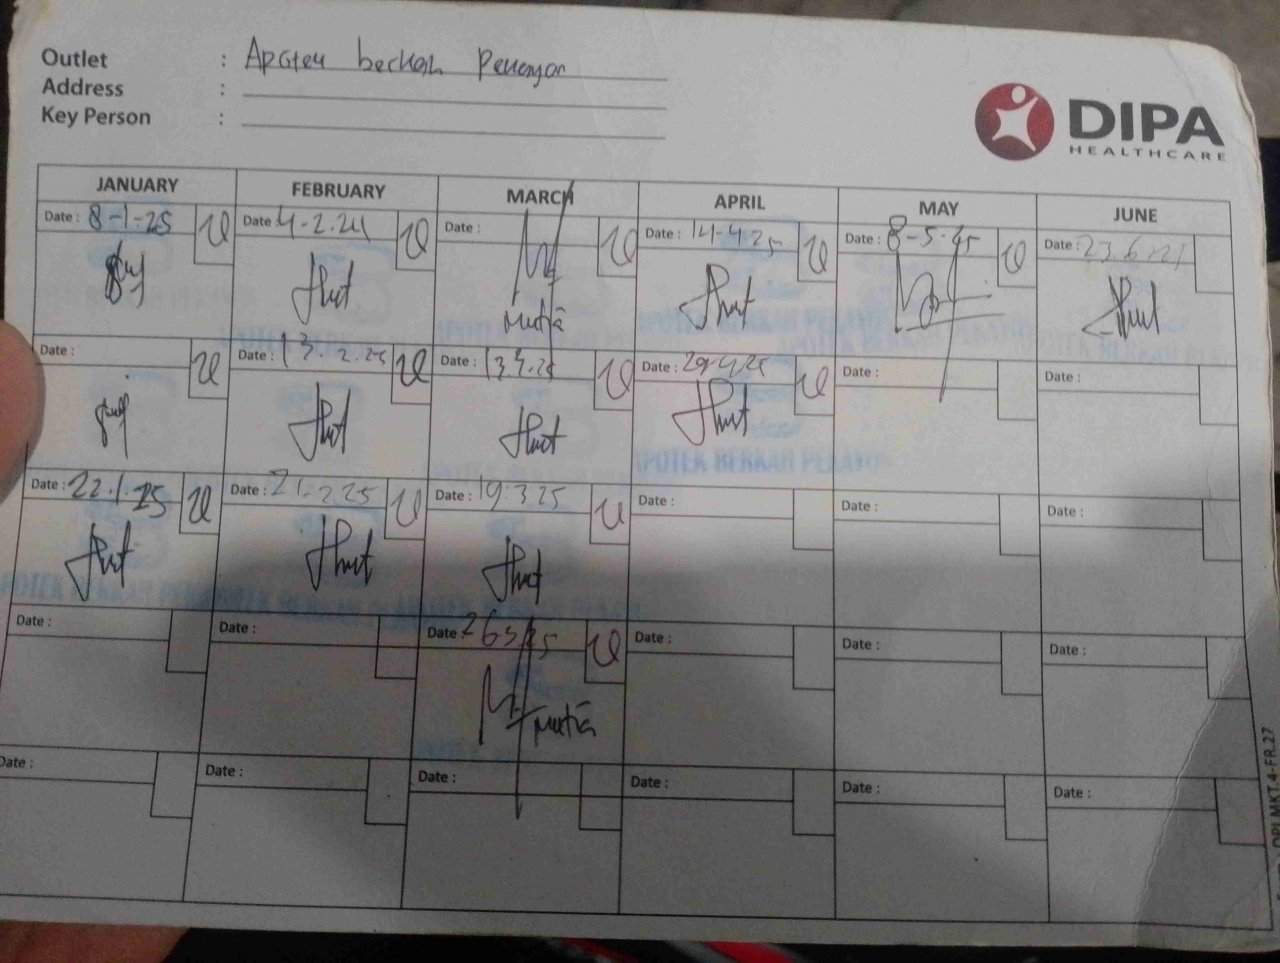 Outlet : Apotek berkah Penanjar
Address :
Key Person :
DIPA
HEALTHCARE
JANUARY FEBRUARY MARCH APRIL MAY JUNE
Date : 8-1-25 Date 4-2.24 Date : Date : 14-4.25 Date : 8-5-45 Date : 23.6.21
Mutia
Date : Date : 13.2.25 Date : 13.3.25 Date : 29.4.25 Date : Date :
Date : 22.1.25 Date : 21.2.25 Date : 19.3.25 Date : Date : Date :
Date : Date : Date : 26325 Date : Date : Date :
Mutia
Date : Date : Date : Date : Date : Date :
MKT.4-FR.27